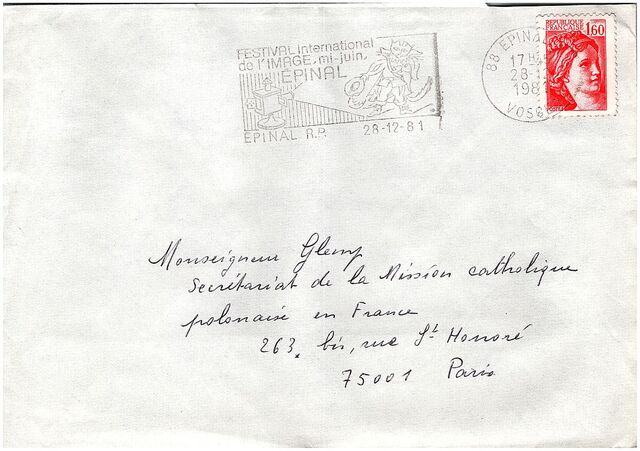 FESTIVAL international
de l'IMAGE. mi-juin.
ÉPINAL
EPINAL R.P. 28-12-81
88 EPINAL
17 H
28-
198
VOSG
REPUBLIQUE
FRANCAISE
1,60
Monseigneur Glemp
Secrétariat de la Mission catholique
polonaise en France
263 bis, rue St Honoré
75001 Paris